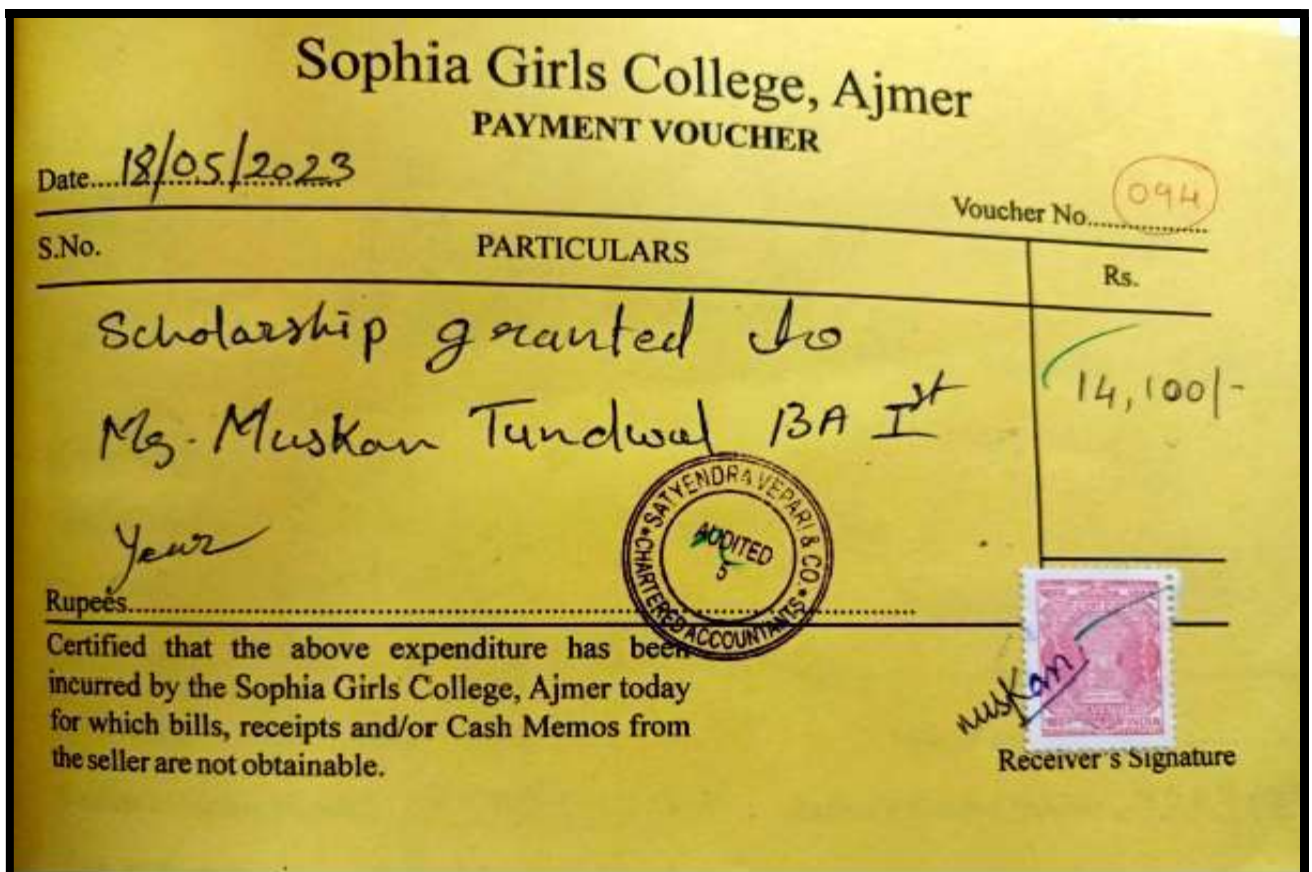 Sophia Girls College, Ajmer
PAYMENT VOUCHER
Date....18/05/2023
Voucher No. 094
S.No. PARTICULARS Rs.
Scholarship granted to
14,100/-
Ms. Muskan Tundwal BA Ist
Year
SATYENDRA VEPARI & CO.
CHARTERED ACCOUNTANTS
AUDITED
5
Rupees
Certified that the above expenditure has been
incurred by the Sophia Girls College, Ajmer today
for which bills, receipts and/or Cash Memos from
the seller are not obtainable.
muskan
INDIA
Receiver's Signature